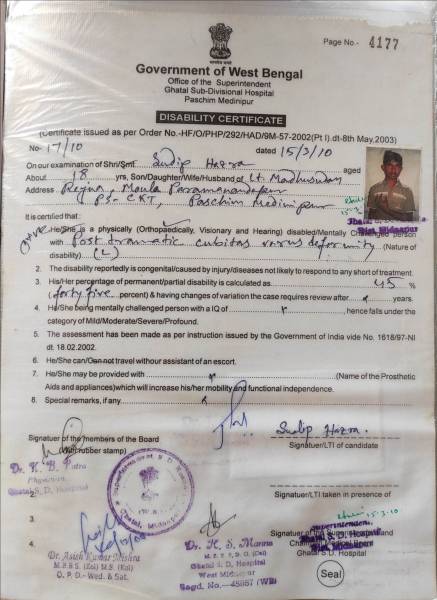 Page No.- 4177
Government of West Bengal
Office of the Superintendent
Ghatal Sub-Divisional Hospital
Paschim Medinipur
DISABILITY CERTIFICATE
(Certificate issued as per Order No.-HF/O/PHP/292/HAD/9M-57-2002(Pt I).dt-8th May.2003)
No- 17/10 dated 15/3/10
On our examination of Shri/Smt Sudip Hazra aged
About 18 yrs, Son/Daughter/Wife/Husband of Lt. Madhusudan
Address
PS- CKT, Paschim Medinipur
It is certified that :
He/She is a physically (Orthopaedically, Visionary and Hearing) disabled/Mentally Challenged person
with Post dramatic cubitas varus deformity (Nature of
disability) (L)
2. The disability reportedly is congenital/caused by injury/diseases not likely to respond to any short of treatment.
3. His/Her percentage of permanent/partial disability is calculated as 45 %
(forty five percent) & having changes of variation the case requires review after years.
4. He/She being mentally challenged person with a IQ of , hence falls under the
category of Mild/Moderate/Severe/Profound.
5. The assessment has been made as per instruction issued by the Government of India vide no. 1618/97-NI
dt. 18.02.2002.
6. He/She can/Can not travel without assistant of an escort.
7. He/She may be provided with (Name of the Prosthetic
Aids and appliances)which will increase his/her mobility and functional independence.
8. Special remarks, if any
Sudip Hazra.
Signatuer of the members of the Board
(With rubber stamp)
Signatuer/LTI of candidate
Dr. K. B. Patra
Physician,
Ghatal S. D. Hospital
Signatuer/LTI taken in presence of
2.
3.
4.
15.3.10
Dr. Asish Kumar Mishra
M.B.B.S. (Kol) M.S. (Kol)
O. P. D.-Wed. & Sat.
Dr. H. S. Manna
Ghatal S. D. Hospital
West Midnapur
Regd. No.-45957 (WB)
Superintendent
S. D. Hospital
Seal